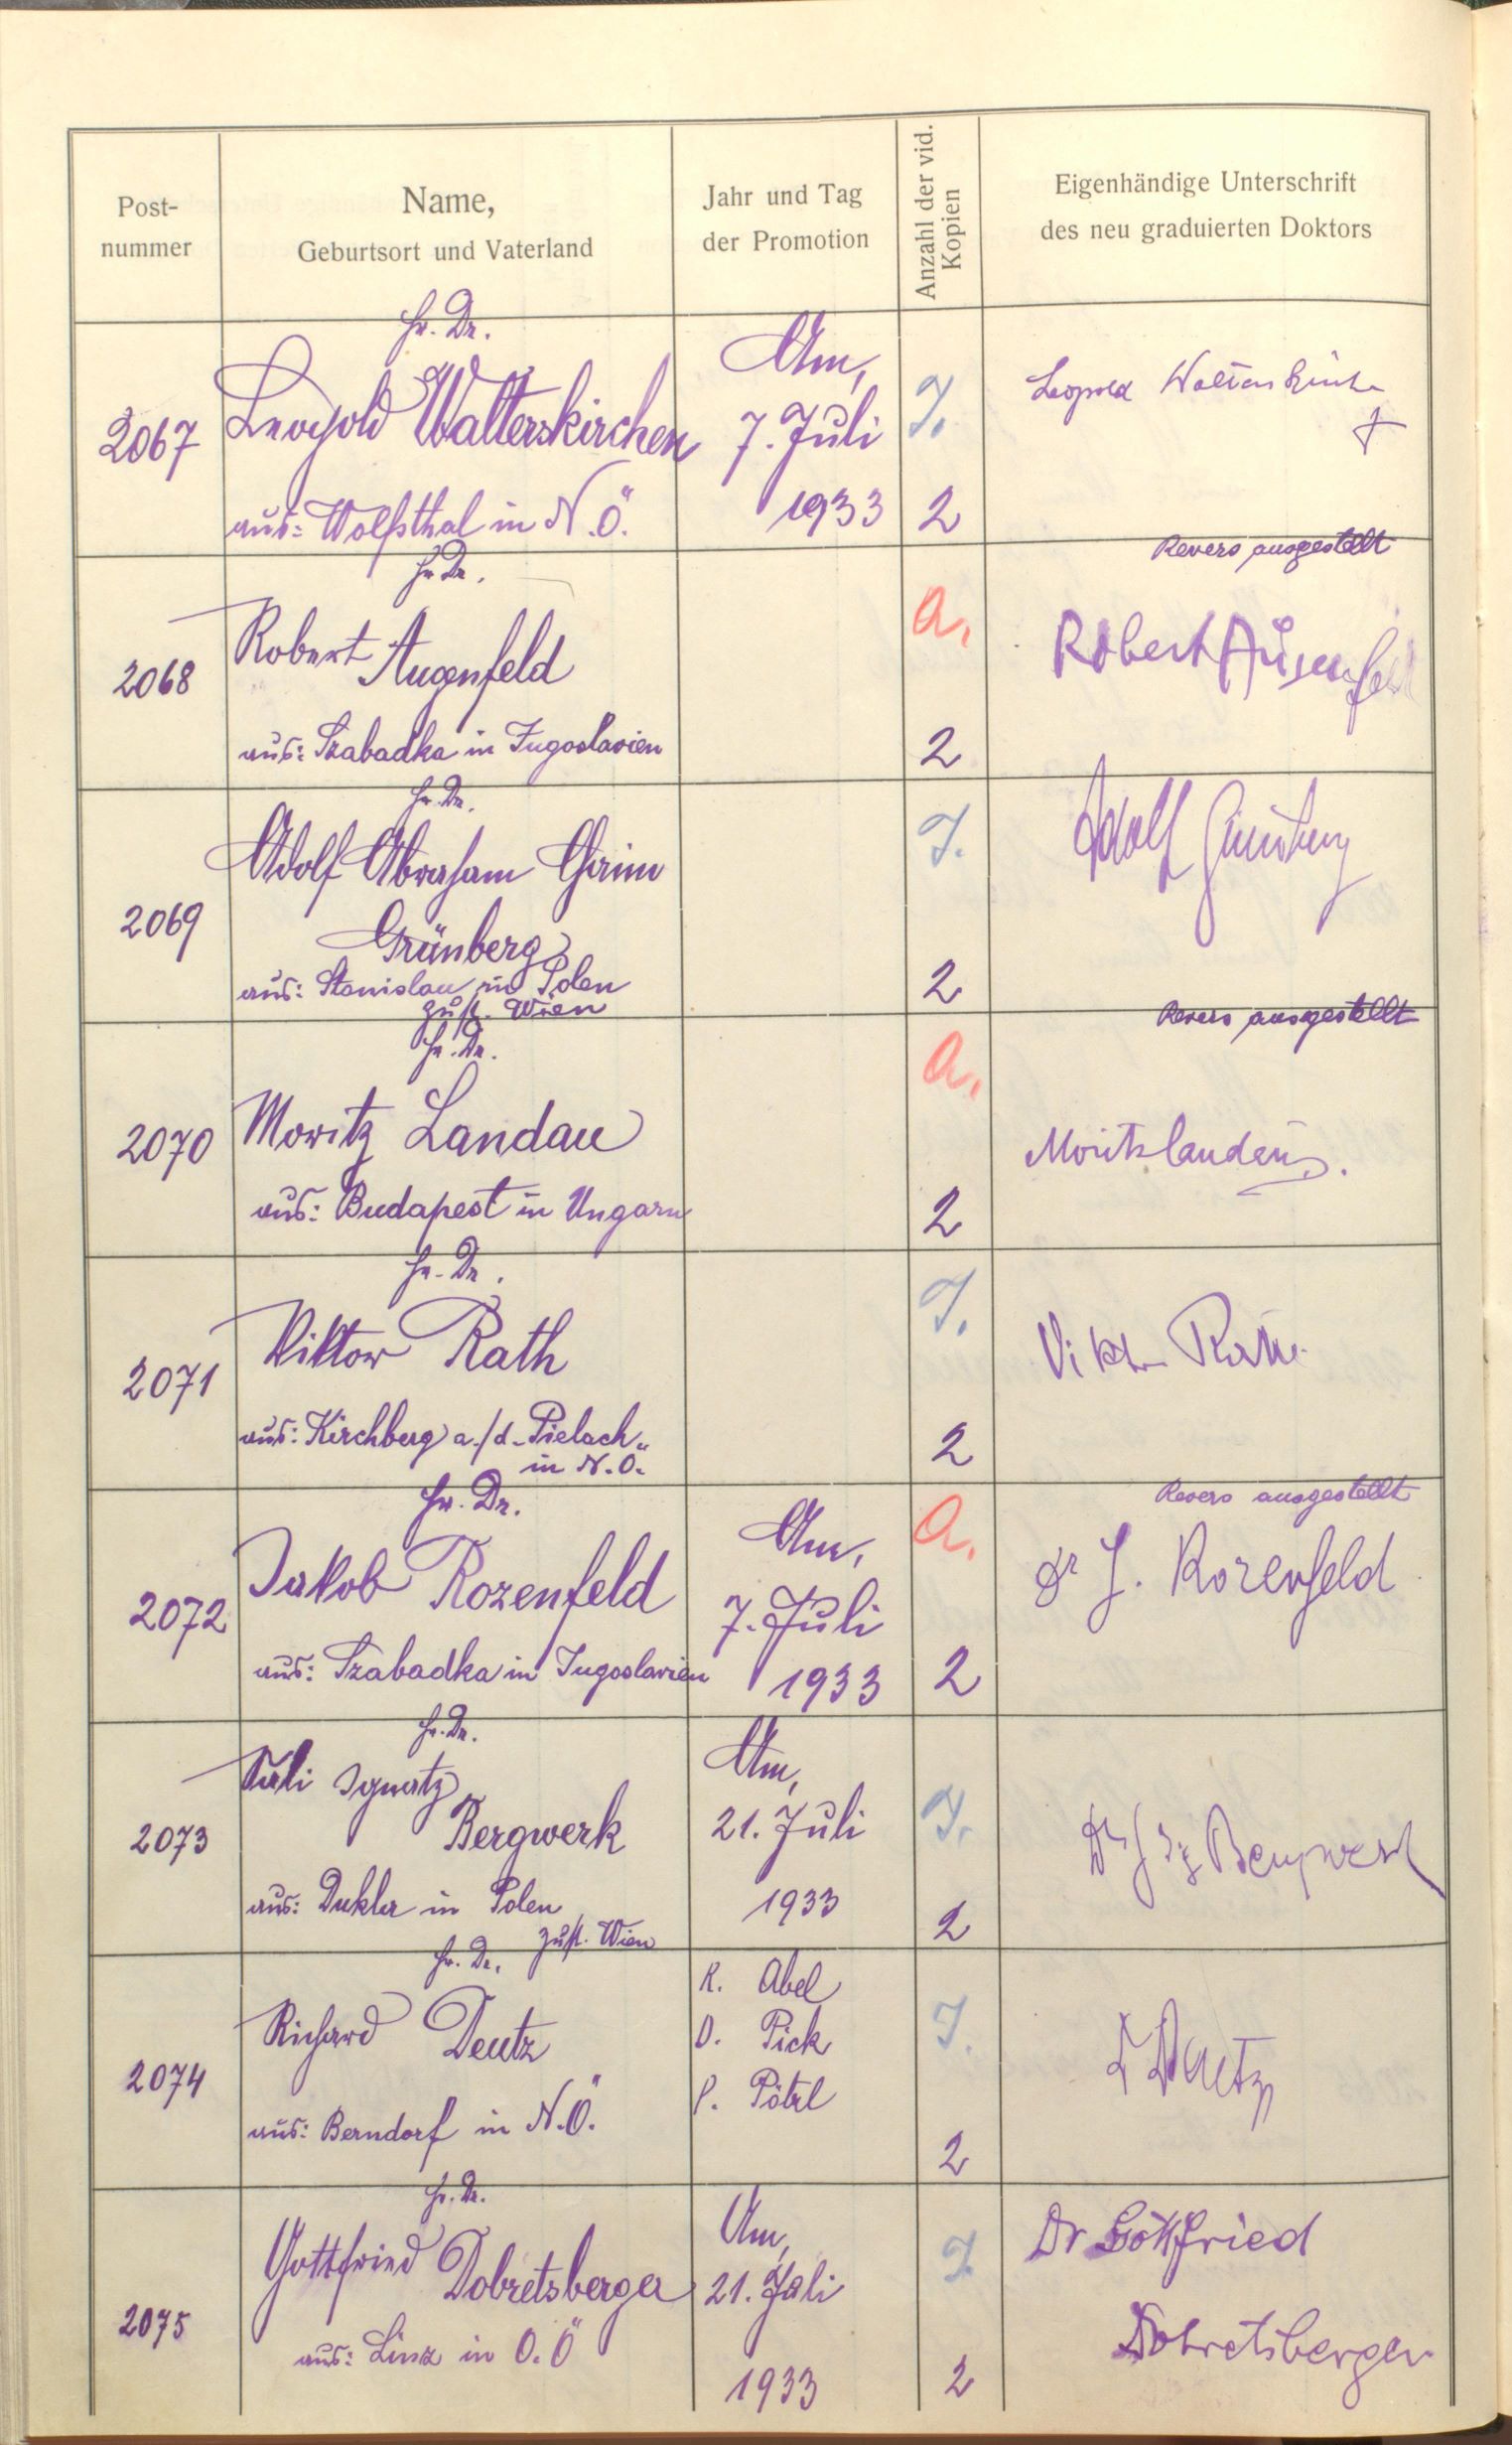 Post-
nummer
Name,
Geburtsort und Vaterland
Jahr und Tag
der Promotion
Anzahl der vid.
Kopien
Eigenhändige Unterschrift
des neu graduierten Doktors
Hr. Dr.
2067
Leopold Walterskirchen
aus: Wolfsthal in N.Ö.
Am,
7. Juli
1933
I.
2
Leopold Walterskirchen
Hr. Dr.
2068
Robert Augenfeld
aus: Szabadka in Jugoslavien
a.
2
Revers ausgestellt
Robert Augenfeld
Hr. Dr.
2069
Adolf Abraham Chaim
Grünberg
aus: Stanislau in Polen
zust. Wien
I.
2
Adolf Grünberg
Hr. Dr.
2070
Moritz Landau
aus: Budapest in Ungarn
a.
2
Revers ausgestellt
Moritz Landau
Hr. Dr.
2071
Viktor Rath
aus: Kirchberg a./d. Pielach
in N.Ö.
I.
2
Viktor Rath
Hr. Dr.
2072
Jakob Rozenfeld
aus: Szabadka in Jugoslavien
Am,
7. Juli
1933
a.
2
Revers ausgestellt
Dr J. Rozenfeld
Hr. Dr.
2073
Juli Ignatz
Bergwerk
aus: Dukla in Polen
zust. Wien
Am,
21. Juli
1933
I.
2
Bergwerk
Hr. Dr.
2074
Richard Deutz
aus: Berndorf in N.Ö.
R. Abel
D. Pick
P. Pötzl
I.
2
Deutz
Hr. Dr.
2075
Gottfried Dobretsberger
aus: Linz in O.Ö
Am,
21. Juli
1933
I.
2
Dr Gottfried
Dobretsberger